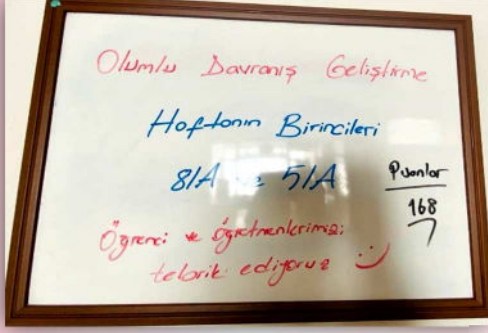 Olumlu Davranış Geliştirme
Haftanın Birincileri
8/A ve 5/A
Puanlar
168
Öğrenci ve öğretmenlerimizi
tebrik ediyoruz :)